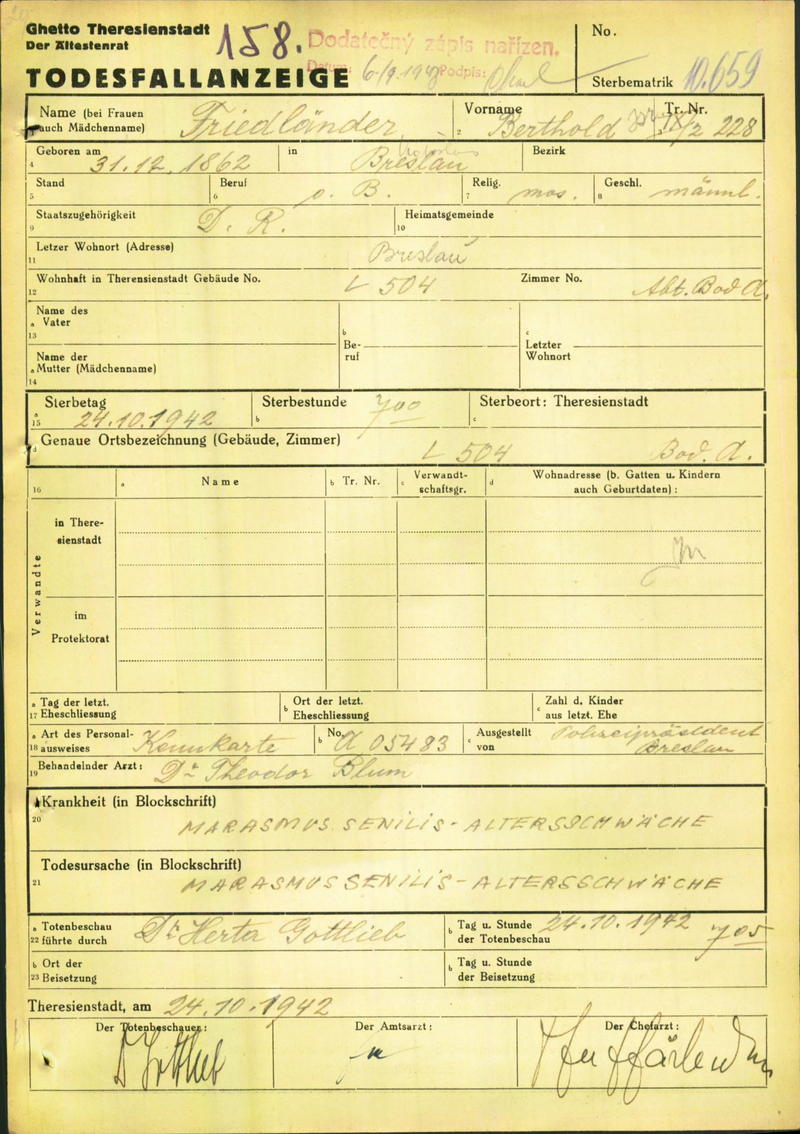 Ghetto Theresienstadt
Der Ältestenrat
158.
Dodatečný zápis nařízen.
Datum: 6/9.1948 Podpis:
No.
TODESFALLANZEIGE
Sterbematrik 10.659
Name (bei Frauen auch Mädchenname) Friedländer
2 Vorname Berthold
Tr. Nr. IX/2 228
4 Geboren am 31.12.1862 in Breslau Bezirk
5 Stand 6 Beruf o. B. 7 Relig. mos. 8 Geschl. männl.
9 Staatszugehörigkeit D. R. 10 Heimatsgemeinde
11 Letzer Wohnort (Adresse) Breslau
12 Wohnhaft in Theresienstadt Gebäude No. L 504 Zimmer No. Abt. Bod A.
13 a Name des Vater b Be-ruf c Letzter Wohnort
14 a Name der Mutter (Mädchenname)
15 a Sterbetag 24.10.1942 b Sterbestunde 7 00 c Sterbeort: Theresienstadt
d Genaue Ortsbezeichnung (Gebäude, Zimmer) L 504 Bod. A.
16 a Name b Tr. Nr. c Verwandt-schaftsgr. d Wohnadresse (b. Gatten u. Kindern auch Geburtdaten):
Verwandte
in There-sienstadt
im Protektorat
17 a Tag der letzt. Eheschliessung b Ort der letzt. Eheschliessung c Zahl d. Kinder aus letzt. Ehe
18 a Art des Personal-ausweises Kennkarte b No. A 05483 c Ausgestellt von Polizeipräsident Breslau
19 Behandelnder Arzt: Dr Theodor Blum
20 Krankheit (in Blockschrift)
MARASMUS SENILIS - ALTERSSCHWÄCHE
21 Todesursache (in Blockschrift)
MARASMUS SENILIS - ALTERSSCHWÄCHE
22 a Totenbeschau führte durch Dr Herta Gottlieb b Tag u. Stunde der Totenbeschau 24.10.1942 7 05
23 b Ort der Beisetzung b Tag u. Stunde der Beisetzung
Theresienstadt, am 24.10.1942
Der Totenbeschauer: Der Amtsarzt: Der Chefarzt:
Dr Gottlieb